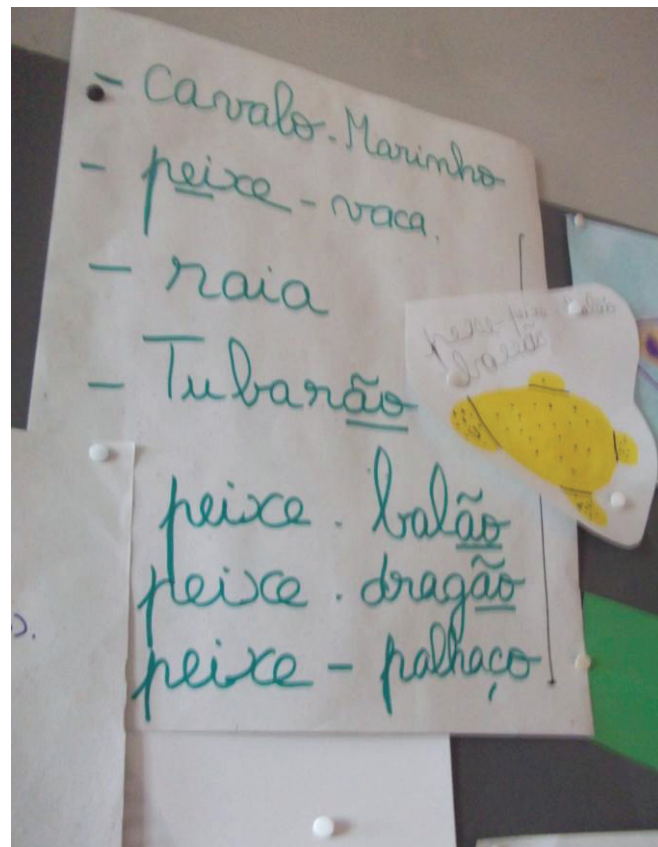 - Cavalo-Marinho
- peixe - vaca.
- raia
- Tubarão
peixe - balão
peixe - dragão
peixe - palhaço
peixe-
balão